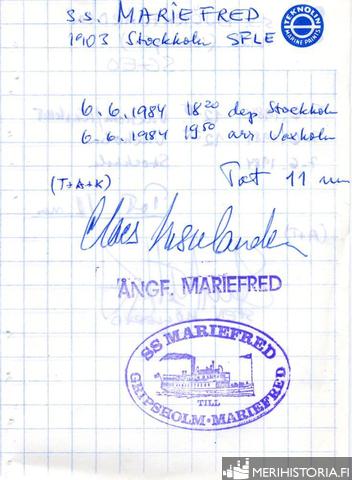 S.S. MARIEFRED
1903 Stockholm SFLE
TEKNOLIN
MARINE PAINTS
6.6.1984 18²⁰ dep Stockholm
6.6.1984 19⁵⁰ arr Vaxholm
(T+A+K)
Tot 11 nm
Claes
ÅNGF. MARIEFRED
SS MARIEFRED
TILL
GRIPSHOLM·MARIEFRED
MERIHISTORIA.FI